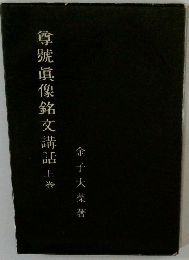 尊號眞像銘文講話 上巻
金子大榮著